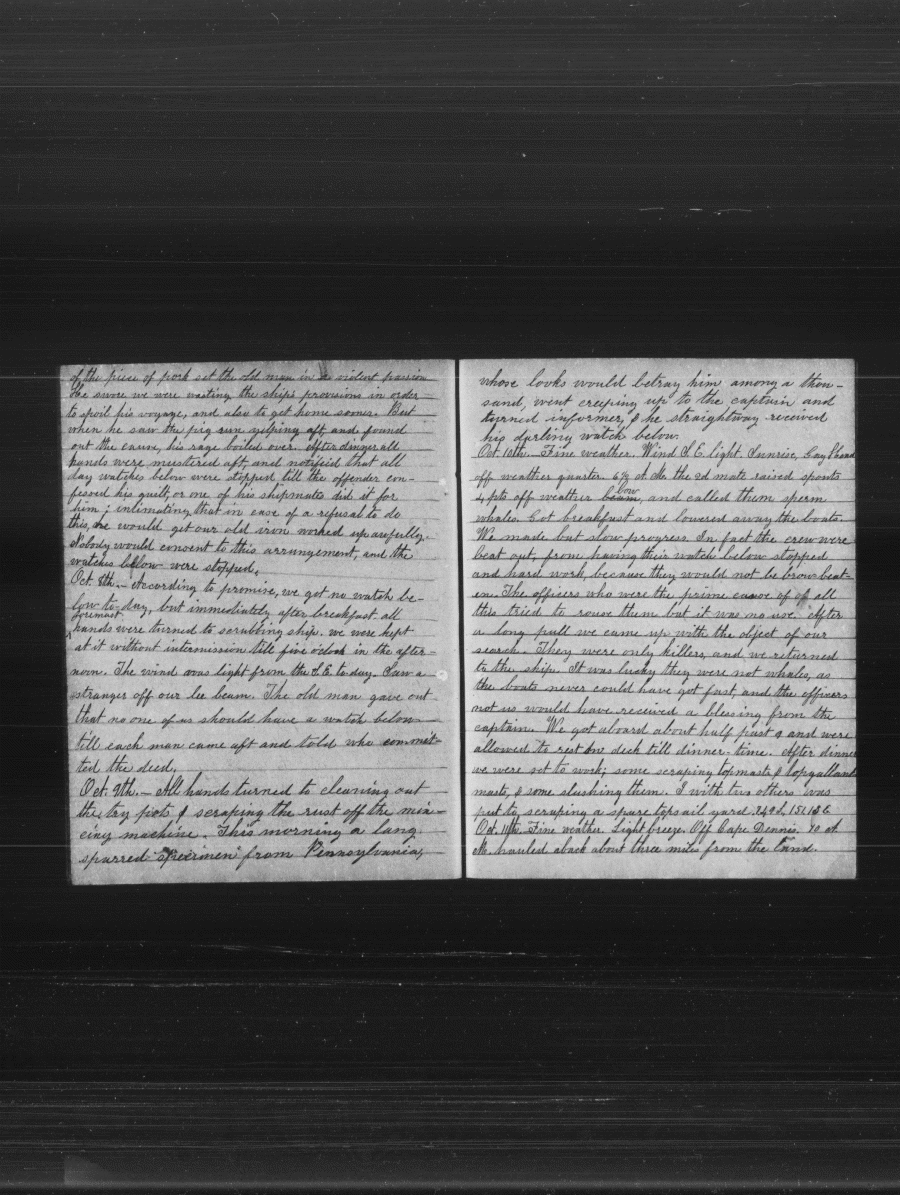 of the piece of pork set the old man in a violent passion
He swore we were wasting the ship's provisions in order
to spoil his voyage, and also to get home sooner. But
when he saw the pig run yelping aft and found
out the cause, his rage boiled over. After dinner all
hands were meustered aft, and notified that all
day watches below were stopped till the offender con-
fessed his guilt, or one of his shipmates did it for
him; intimating that in case of a refusal to do
this, he would get our old iron worked up awfully.
Nobody would consent to this arrangement, and the
watches below were stopped.
Oct. 8th. - According to promise, we got no watch be-
low to-day, but immediately after breakfast all
foremast
hands were turned to scrubbing ship. we were kept
at it without intermission till five o'clock in the after-
noon. The wind was light from the S.E. to-day. Saw a
stranger off our lee beam. The old man gave out
that no one of us should have a watch below
till each man came aft and told who commit-
ted the deed.
Oct. 9th. - All hands turned to cleaning out
the try pots & scraping the rust off the min-
cing machine. This morning a long
sparred "specimen" from Pennsylvania,
whose looks would betray him among a thou-
sand, went creeping up to the captain and
turned informer, & he straightway received
his darling watch below.
Oct 10th. - Fine weather. Wind S.E. light. Sunrise, Gay Head
off weather quarter. 6½ A.M. the 2d mate raised spouts
bow
4 pts off weather beam, and called them sperm
whales. Got breakfast and lowered away the boats.
We made but slow progress. In fact the crew were
beat out, from having their watch below stopped
and hard work, because they would not be browbeat-
en. The officers who were the prime cause of of all
this tried to rouse them but it was no use. After
a long pull we came up with the object of our
search. They were only killers, and we returned
to the ship. It was lucky they were not whales, as
the boats never could have got fast and the officers
nor us would have received a blessing from the
captain. We got aboard about half past and were
allowed to rest on deck till dinner-time. After dinner
we were set to work; some scraping topmasts & topgallant
masts, & some slushing them. I with two others was
put to scraping a spare topsail yard.
Oct. 11th. Fine weather. Light breeze. Off Cape Dennis. 10 A.
M. hauled aback about three miles from the land.